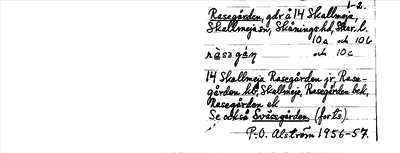 1-2.
Rasegården, gdr å 14 Skallmeja,
Skallmeja sn, Skånings hd, Skar. l.
10a och 10b
och 10c
14 Skallmeja Rasegården jr, Rase-
gården hb, Skallmeja, Rasegården bek,
Rasegården ek
Se också Svåsegården (forts).
P.-O. Alström 1956-57.